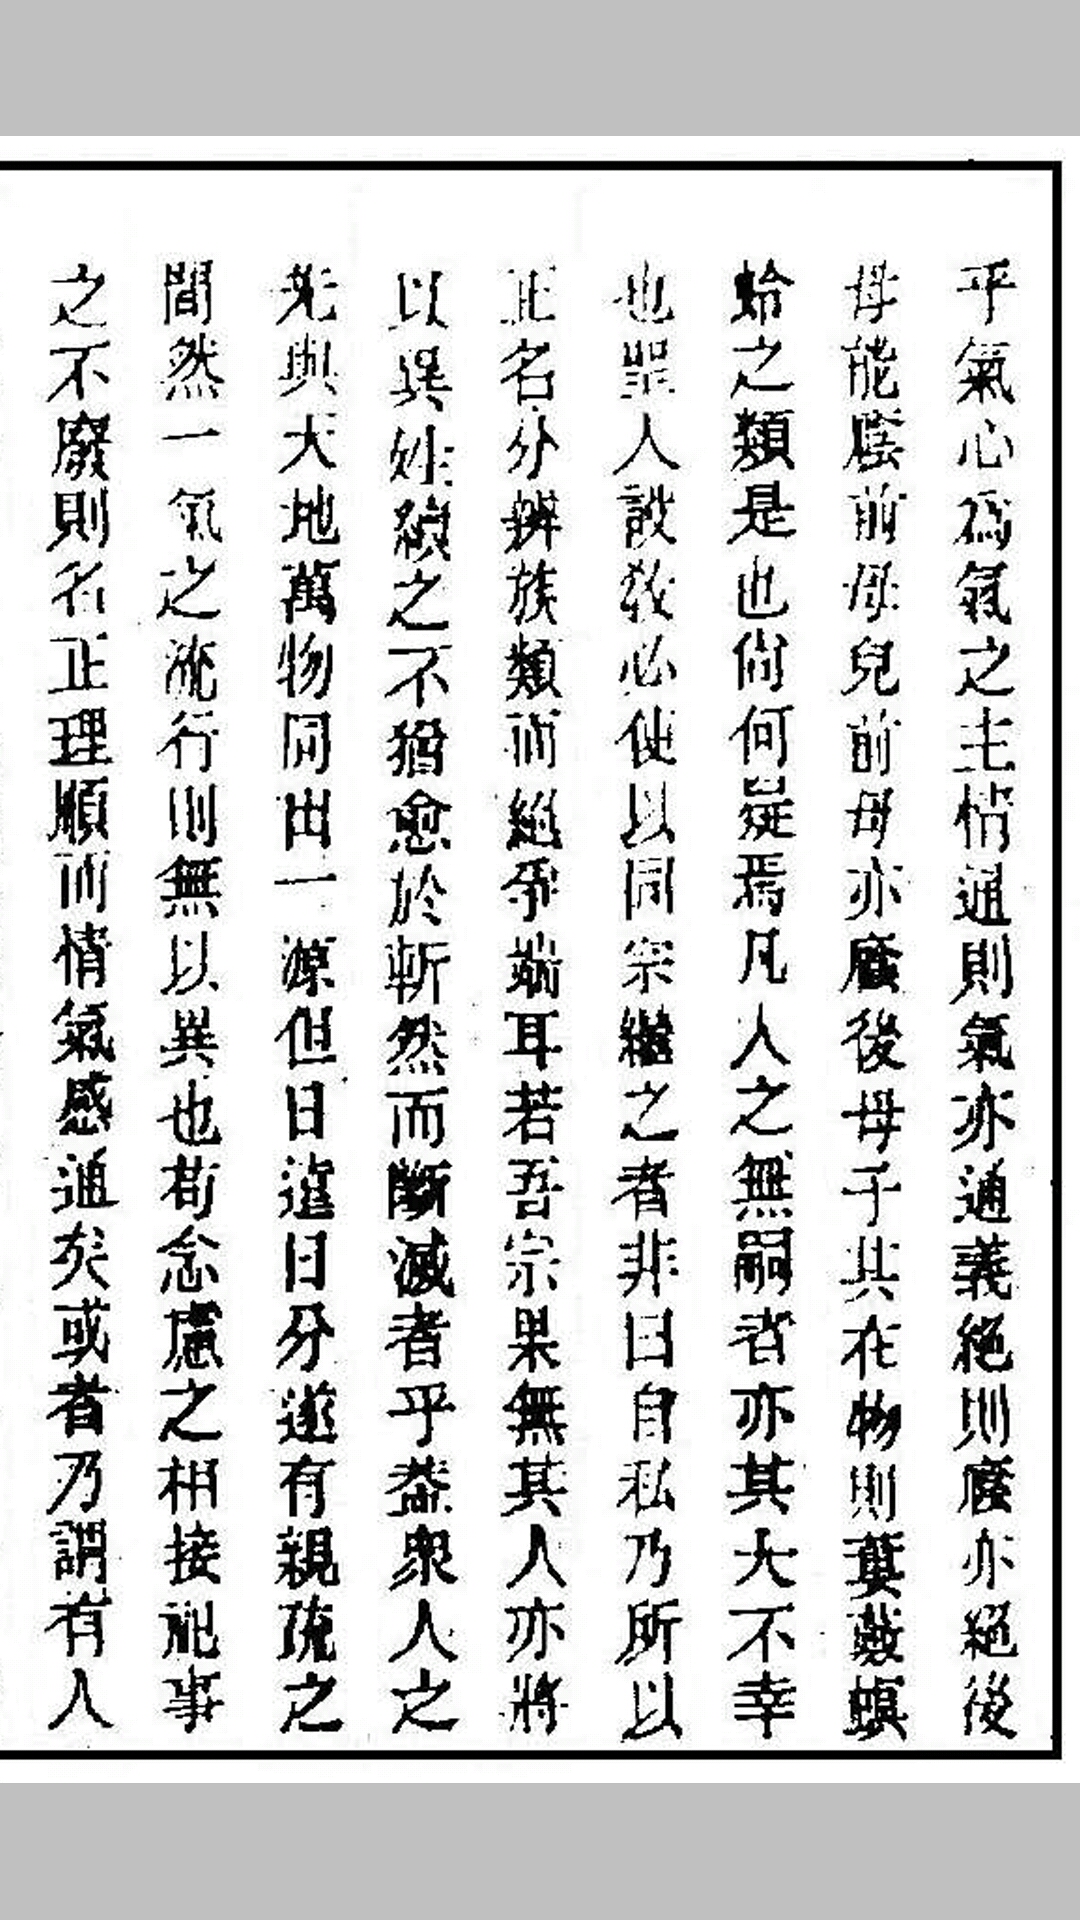 乎氣心為氣之主情通則氣亦通義絕則廕亦絕後
母能廕前母兒前母亦廕後母子其在物則蓂䓘螟
蛉之類是也尚何疑焉凡人之無嗣者亦其大不幸
也聖人設教必使以同宗繼之者非曰自私乃所以
正名分辨族類而絕爭端耳若吾宗果無其人亦將
以異姓續之不猶愈於斬然而斷滅者乎葢衆人之
先與天地萬物同出一源但日遠日分遂有親疏之
間然一氣之流行則無以異也苟念慮之相接祀事
之不廢則名正理順而情氣感通矣或者乃謂有人